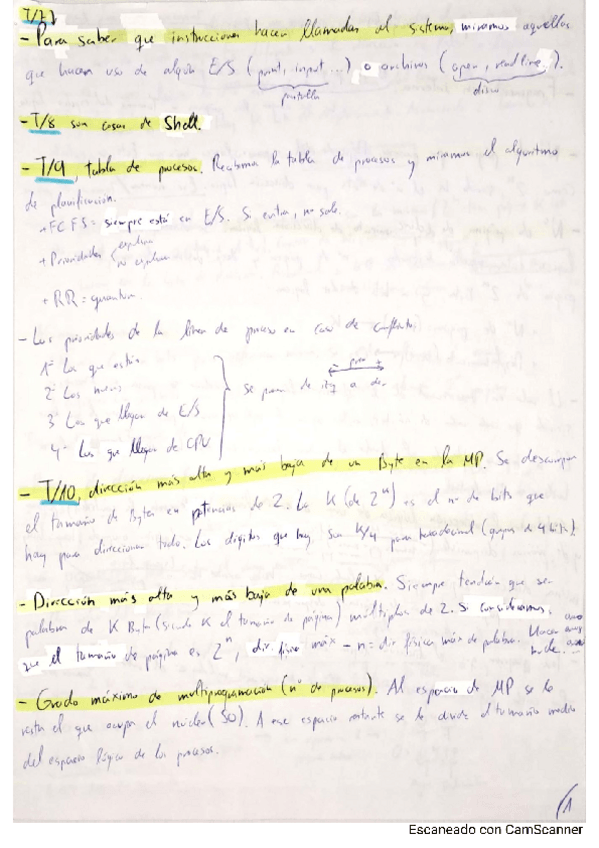 T/7
- Para saber que instrucciones hacen llamadas al sistema, miramos aquellas
que hacen uso de algún E/S (print, input ...) o archivos (open, readline ...).
pantalla disco
- T/8 son cosas de Shell.
- T/9, tabla de procesos. Realizamos la tabla de procesos y miramos el algoritmo
de planificación.
+ FCFS = siempre está en E/S. Si entra, no sale.
+ Prioridades expulsiva
no expulsiva
+ RR = quantum.
- Las prioridades de la línea de proceso en caso de conflicto:
1º Los que están
2º Los nuevos
3º Los que llegan de E/S
4º Los que llegan de CPU
se ponen de izq a der
- T/10, dirección más alta y más baja de un Byte en la MP. Se descompone
el tamaño de Bytes en potencias de 2. La K (de 2ⁿ) es el nº de bits que
hay para direccionar todo. Los dígitos que hay son K/4 para hexadecimal (grupos de 4 bits).
- Dirección más alta y más baja de una palabra. Siempre tendrán que ser
palabras de K Bytes (siendo K el tamaño de página) múltiplos de 2. Si consideramos
que el tamaño de página es 2ⁿ, dir. física máx - n = dir física máx de palabra. Hacer
- Grado máximo de multiprogramación (nº de procesos). Al espacio de MP se le
resta el que ocupa el núcleo (SO). A ese espacio restante se le divide el tamaño medio
del espacio lógico de los procesos.
1
Escaneado con CamScanner